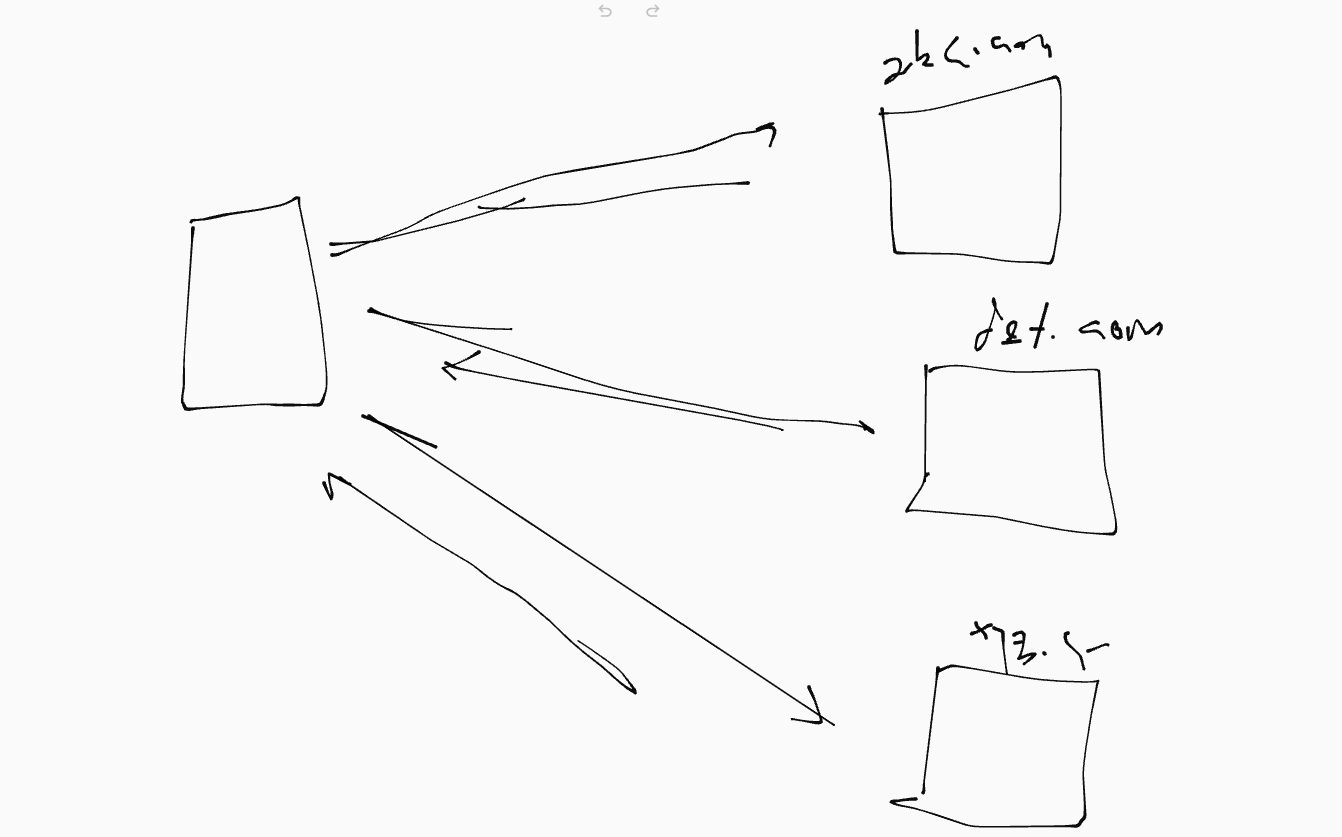 abc.com
def.com
xyz.